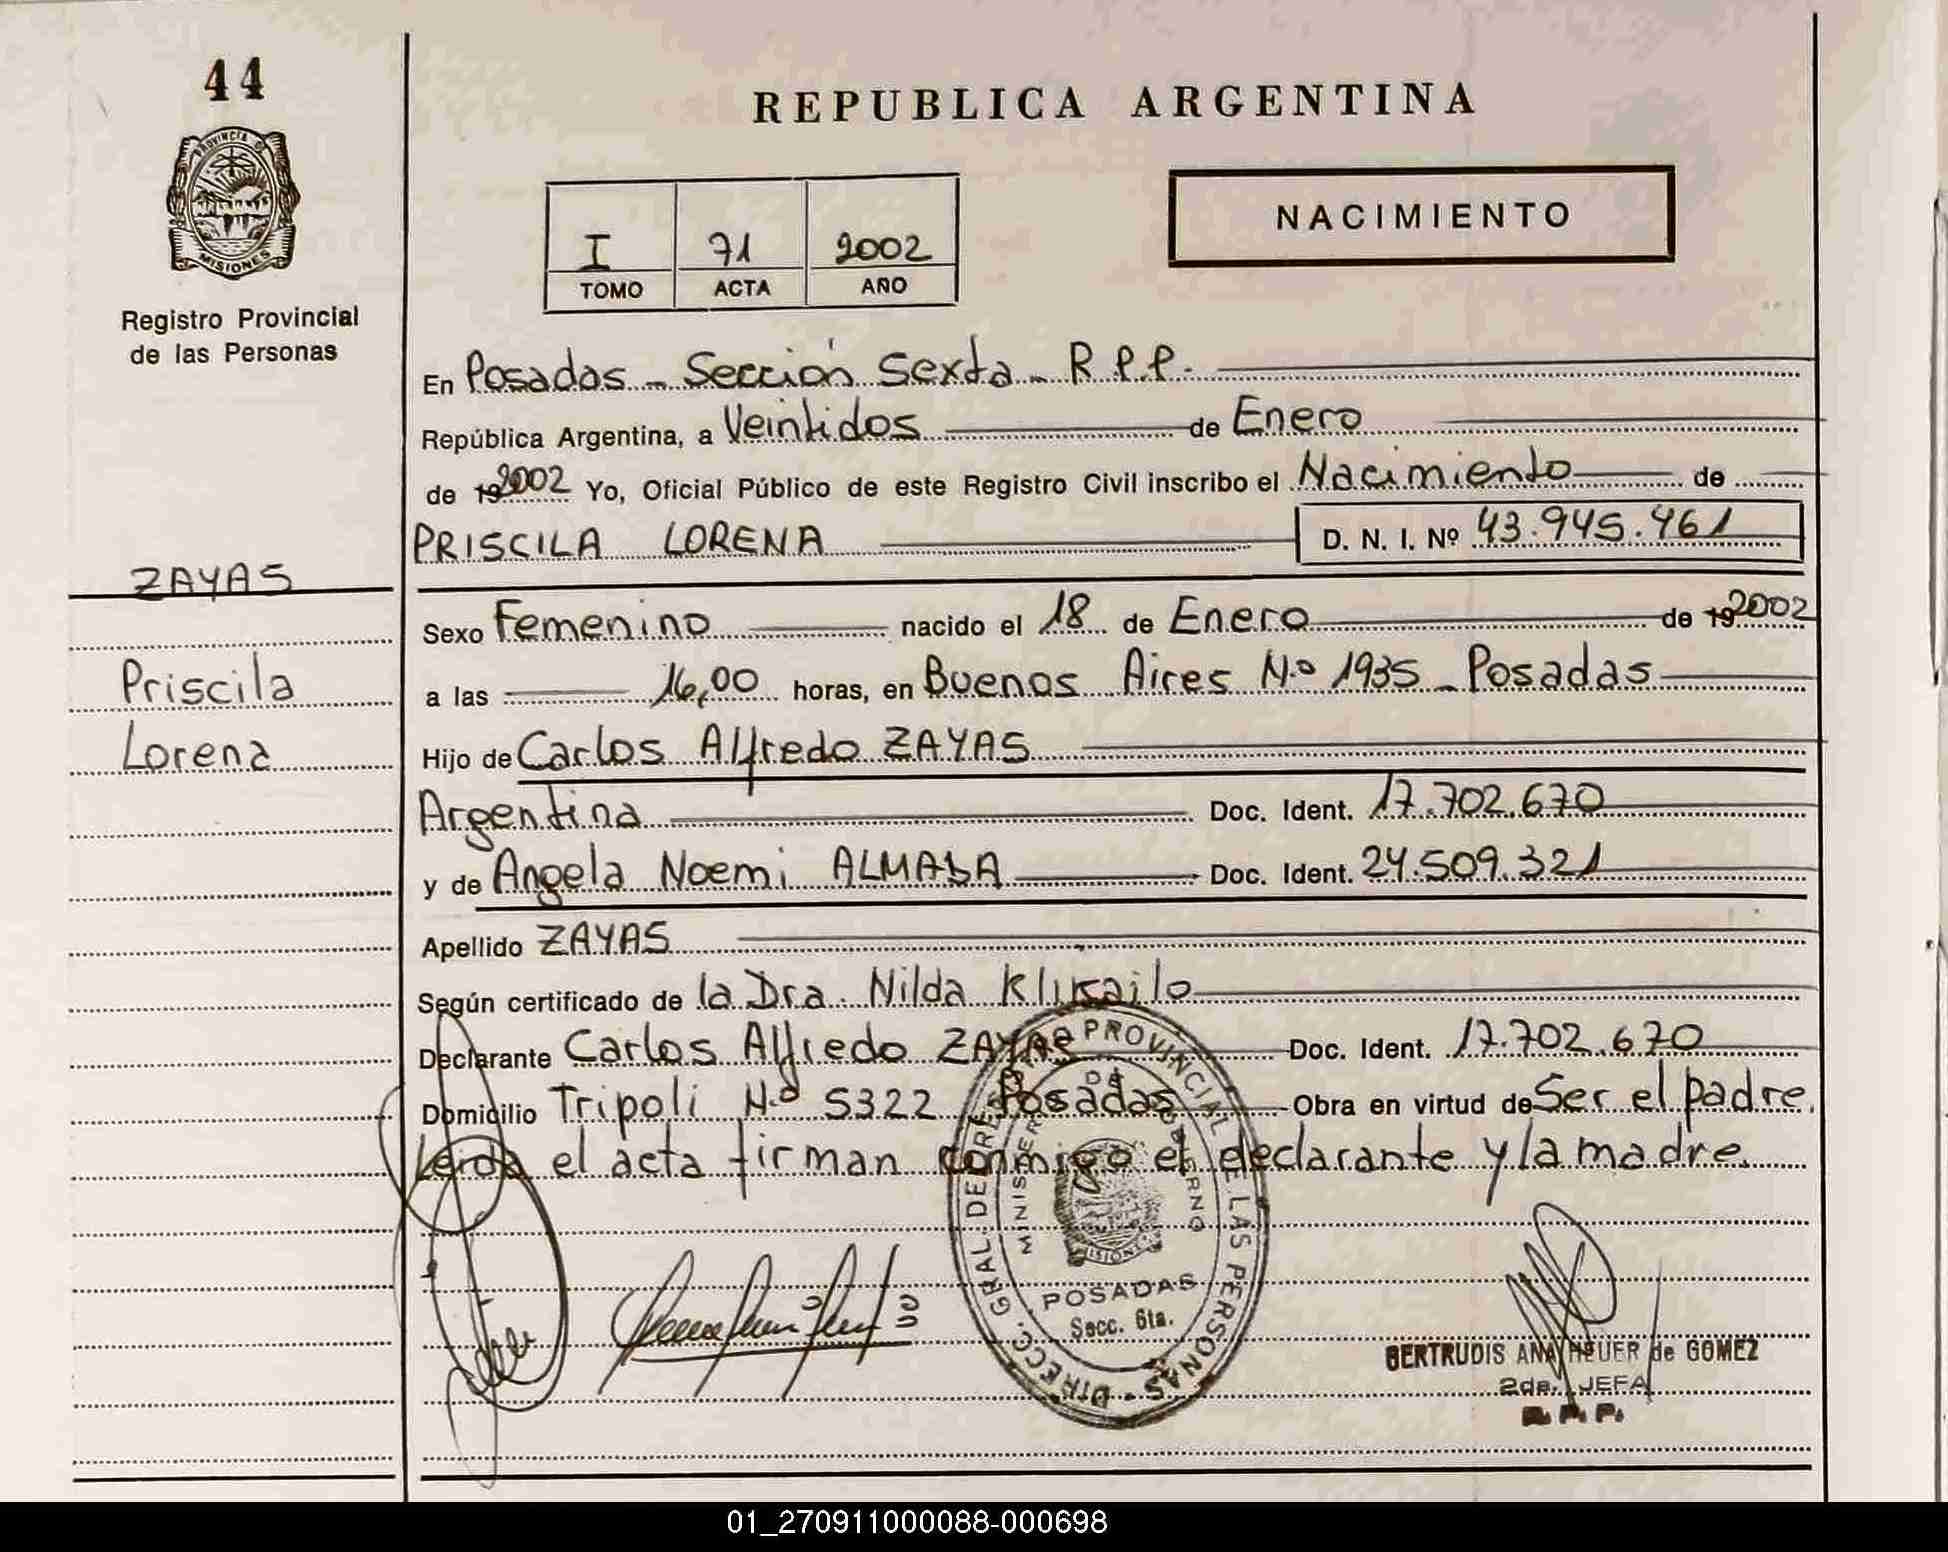 44
PROVINCIA DE
MISIONES
Registro Provincial
de las Personas
ZAYAS
Priscila
Lorena
REPUBLICA ARGENTINA
I 71 2002
TOMO ACTA AÑO
NACIMIENTO
En Posadas - Sección Sexta - R.P.P.
República Argentina, a Veintidos de Enero
de 192002 Yo, Oficial Público de este Registro Civil inscribo el Nacimiento de
PRISCILA LORENA D. N. I. Nº 43.945.461
Sexo Femenino nacido el 18 de Enero de 192002
a las 16,00 horas, en Buenos Aires N.º 1935 - Posadas
Hijo de Carlos Alfredo ZAYAS
Argentina Doc. Ident. 17.702.670
y de Angela Noemi ALMADA Doc. Ident. 24.509.321
Apellido ZAYAS
Según certificado de la Dra. Nilda
Declarante Carlos Alfredo ZAYAS Doc. Ident. 17.702.670
Domicilio Tripoli N.º 5322 Posadas Obra en virtud de Ser el padre.
Leida el acta firman conmigo el declarante y la madre.
DIRECC. GRAL. DE REG. PROVINCIAL DE LAS PERSONAS
MINISTERIO DE GOBIERNO
MISIONES
POSADAS
Secc. 6ta.
GERTRUDIS ANA HEUER de GOMEZ
2da. JEFA
R. P. P.
01_270911000088-000698